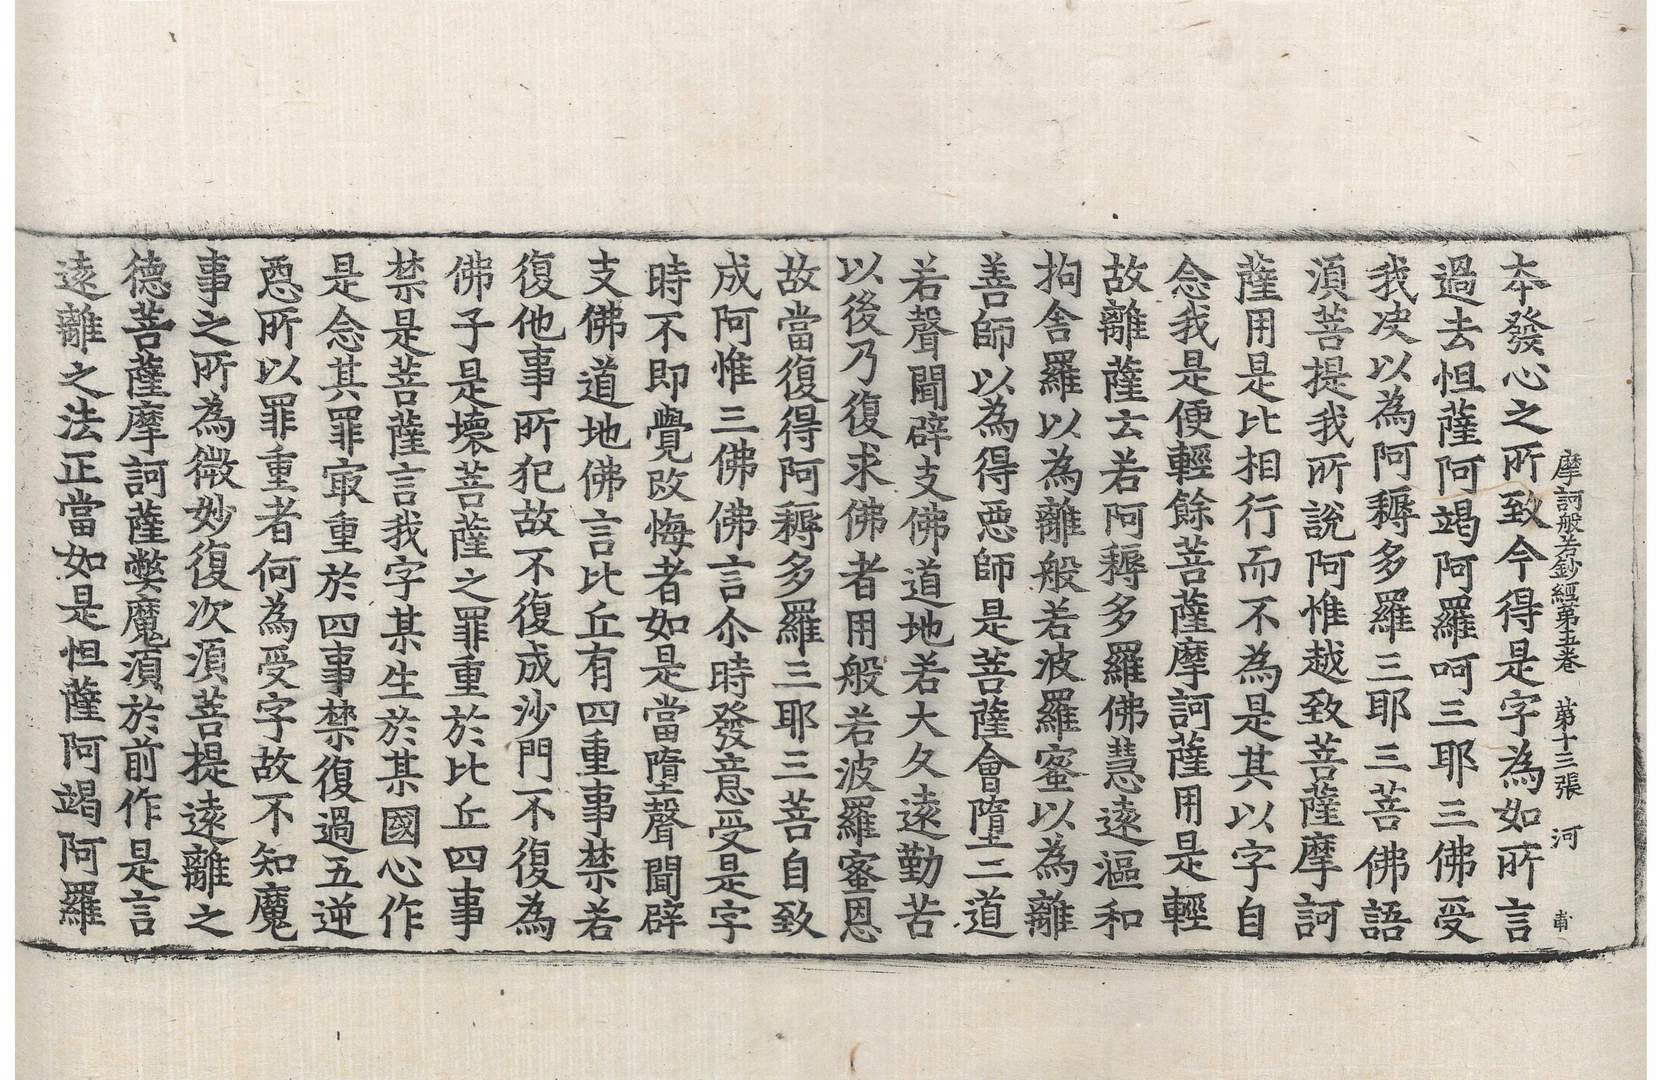 摩訶般若鈔經第五卷 第十三張 河
本發心之所致今得是字為如所言
過去怛薩阿竭阿羅呵三耶三佛受
我决以為阿耨多羅三耶三菩佛語
湏菩提我所說阿惟越致菩薩摩訶
薩用是比相行而不為是其以字自
念我是便輕餘菩薩摩訶薩用是輕
故離薩云若阿耨多羅佛慧遠漚和
拘舍羅以為離般若波羅蜜以為離
善師以為得惡師是菩薩會墮二道
若聲聞辟支佛道地若大久遠勤苦
以後乃復求佛者用般若波羅蜜恩
故當復得阿耨多羅三耶三菩自致
成阿惟三佛佛言尒時發意受是字
時不即覺改悔者如是當墮聲聞辟
支佛道地佛言比丘有四重事禁若
復他事所犯故不復成沙門不復為
佛子是壞菩薩之罪重於比丘四事
禁是菩薩言我字某生於某國心作
是念其罪㝡重於四事禁復過五逆
惡所以罪重者何為受字故不知魔
事之所為微妙復次湏菩提遠離之
德菩薩摩訶薩弊魔湏於前作是言
遠離之法正當如是怛薩阿竭阿羅